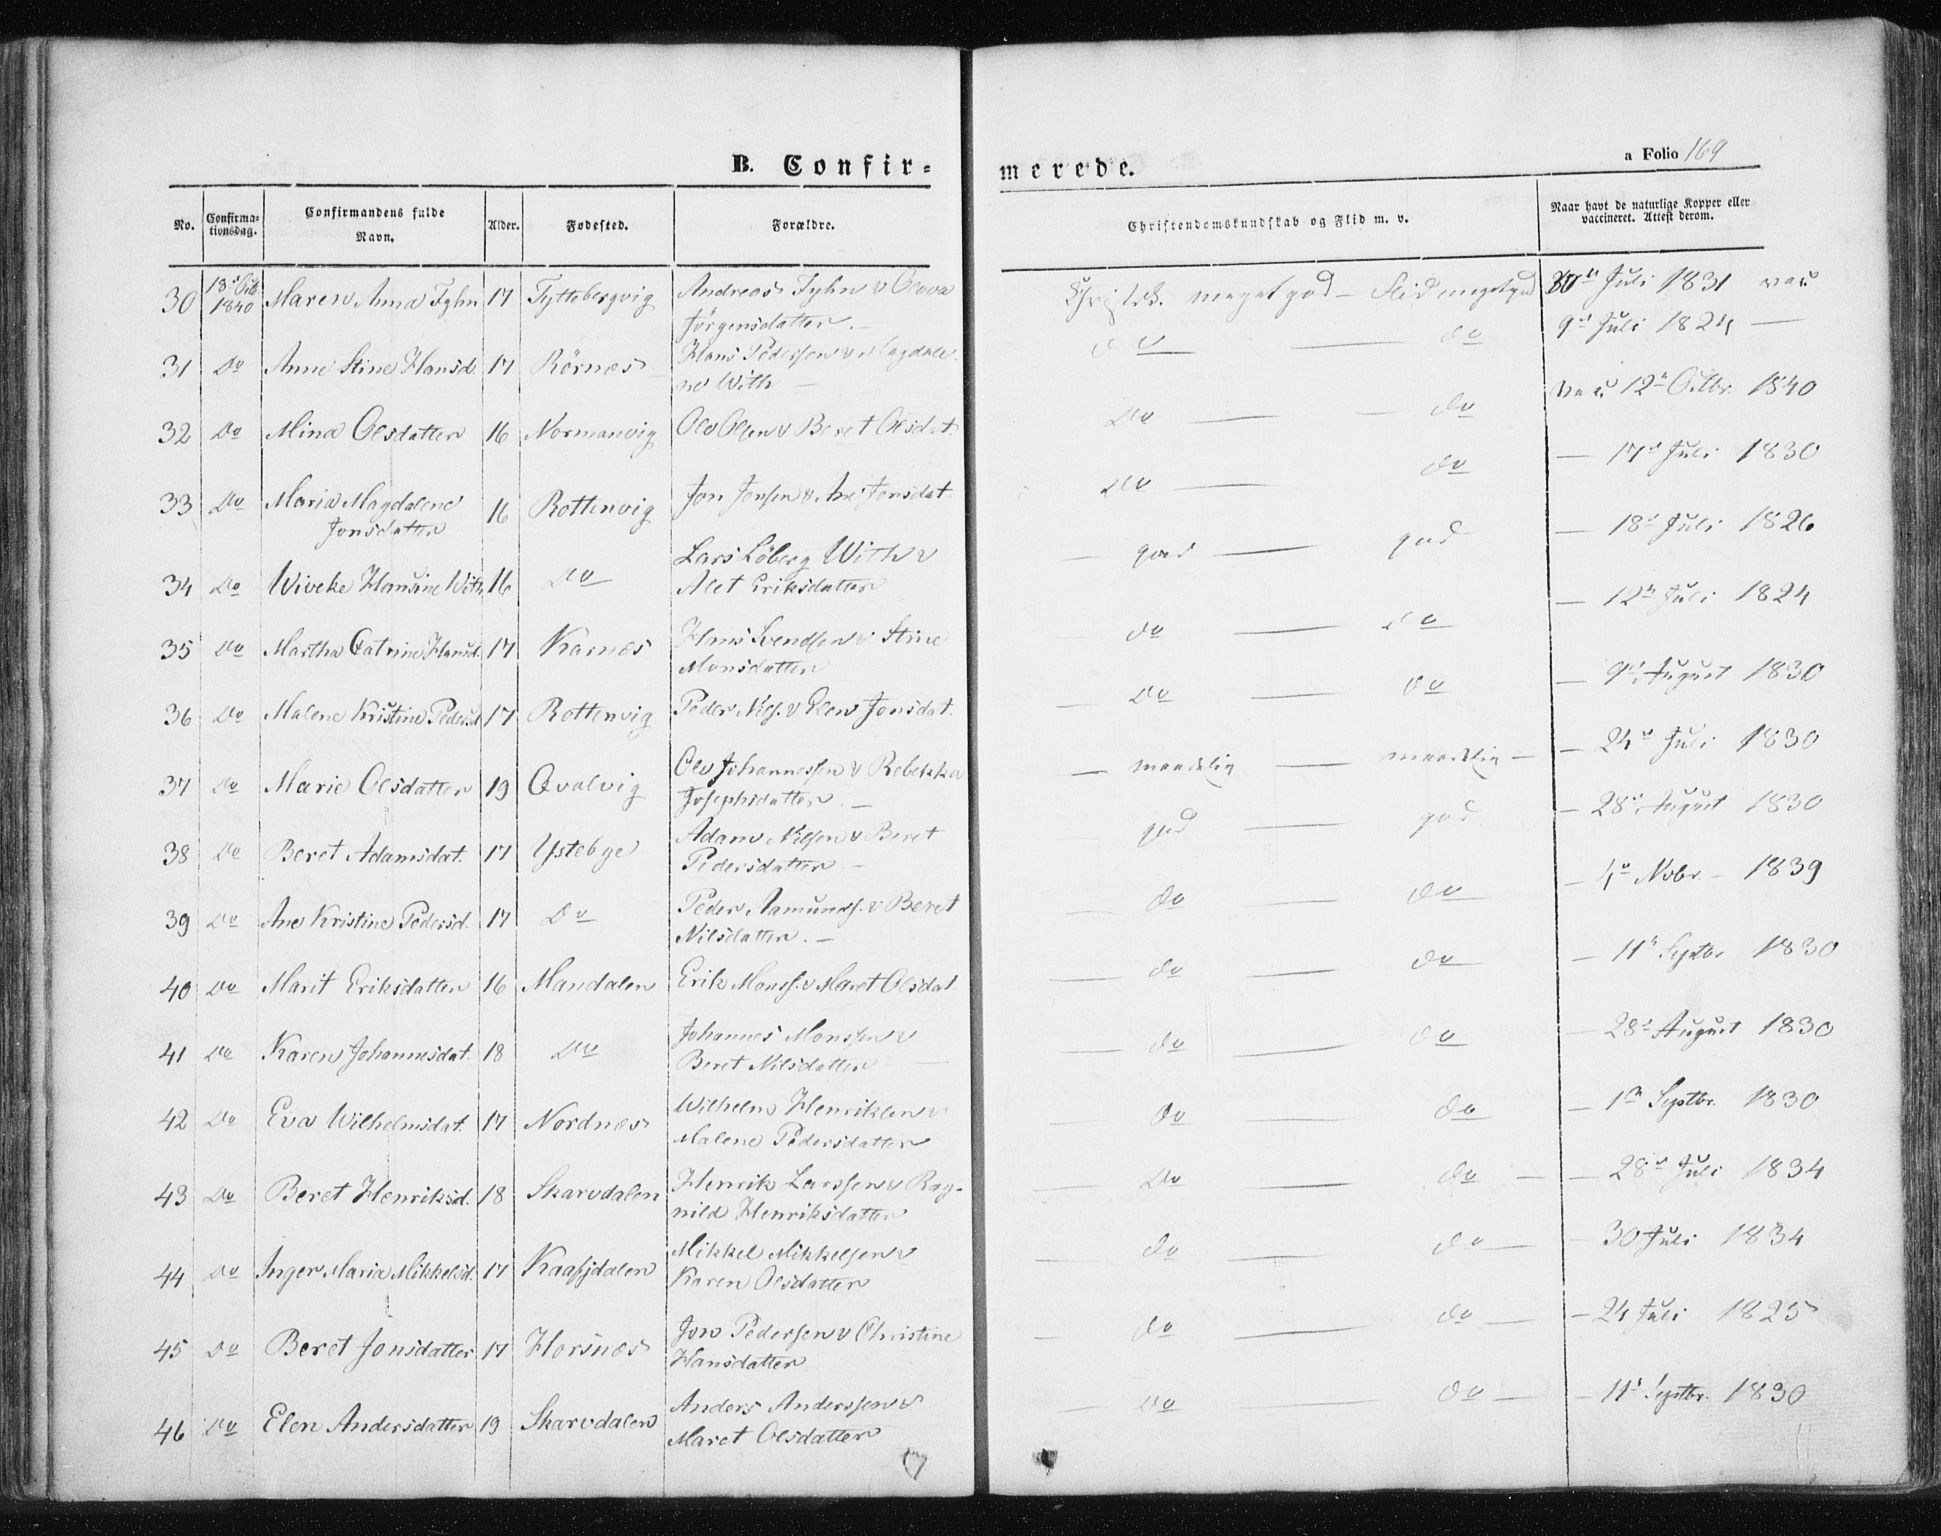 B. Confir=
merede.
a Folio 169
No.
Confirma-
tionsdag.
Confirmandens fulde
Navn.
Alder.
Fødested.
Forældre.
Christendomskundskab og Flid m. v.
Naar havt de naturlige Kopper eller
vaccineret. Attest derom.
30 18 1840 Maren Anna Fyhn 17 Tyttebergvig Andreas Fyhn & Olava
Jörgensdatter. —
meget god — Flid meget god Juli 1831 vac.
31 Do Anne Stine Hansd. 17 Rörnæs Hans Pedersen & Magdale-
ne With —
Do — do 9de Juli 1824 —
32 Do Mina Olsdatter 16 Normanvig Ole Olsen & Beret Olsdat.
Do — do vac. 12te Octbr. 1840
33 Do Maria Magdalene
Jonsdatter
16 Rottenvig Jon Jonsen & Ane Jonsdat.
Do — do — 17de Juli 1830
34 Do Wiveke Hansine With 16 Do Lars Löberg With &
Alet Eriksdatter
— god — god — 18de Juli 1826
35 Do Martha Catrine Hansd. 17 Karnæs Hans Svendsen & Stine
Monsdatter
do — do — 12te Juli 1824
36 Do Malene Kristine Pedersd. 17 Rottenvig Peder Nils. & Elen Jonsdat.
— Do — Do — 9de August 1830
37 Do Marie Olsdatter 19 Qvalvig Ole Johannessen & Rebekka
Josephsdatter. —
— maadelig — maadelig — — 24de Juli 1830
38 Do Beret Adamsdat. 17 Ystebye Adam Nilsen & Beret
Pedersdatter —
— god — god — 28de August 1830
39 Do Ane Kristine Pedersd. 17 Do Peder Aamunds. & Beret
Nilsdatter. —
— do — do — 4de Novbr. — 1839
40 Do Marit Eriksdatter 16 Mandalen Erik Monss. & Maret Olsdat.
— do — do — 11te Septbr 1830
41 Do Karen Johannesdat. 18 Do Johannes Monssen &
Beret Nilsdatter —
— do — do — 28de August 1830
42 Do Eva Wilhelmsdat. 17 Nordnæs Wilhelm Henriksen &
Malene Pedersdatter
— do — do — 1ste Septbr. 1830
43 Do Beret Henriksd. 18 Skarvdalen Henrik Larssen & Rag-
nild Henriksdatter
— Do — do — — 28de Juli 1834
44 Do Inger Maria Mikkelsd. 17 Kaafjdalen Mikkel Mikkelsen &
Karen Olsdatter
— do — do — — 30 Juli 1834
45 Do Beret Jonsdatter 17 Horsnæs Jon Pedersen & Christine
Hansdatter
— do — do — — 24 Juli 1825
46 Do Elen Andersdatter 19 Skarvdalen Anders Anderssen &
Maret Olsdatter
— do — do — — 11te Septbr. 1830